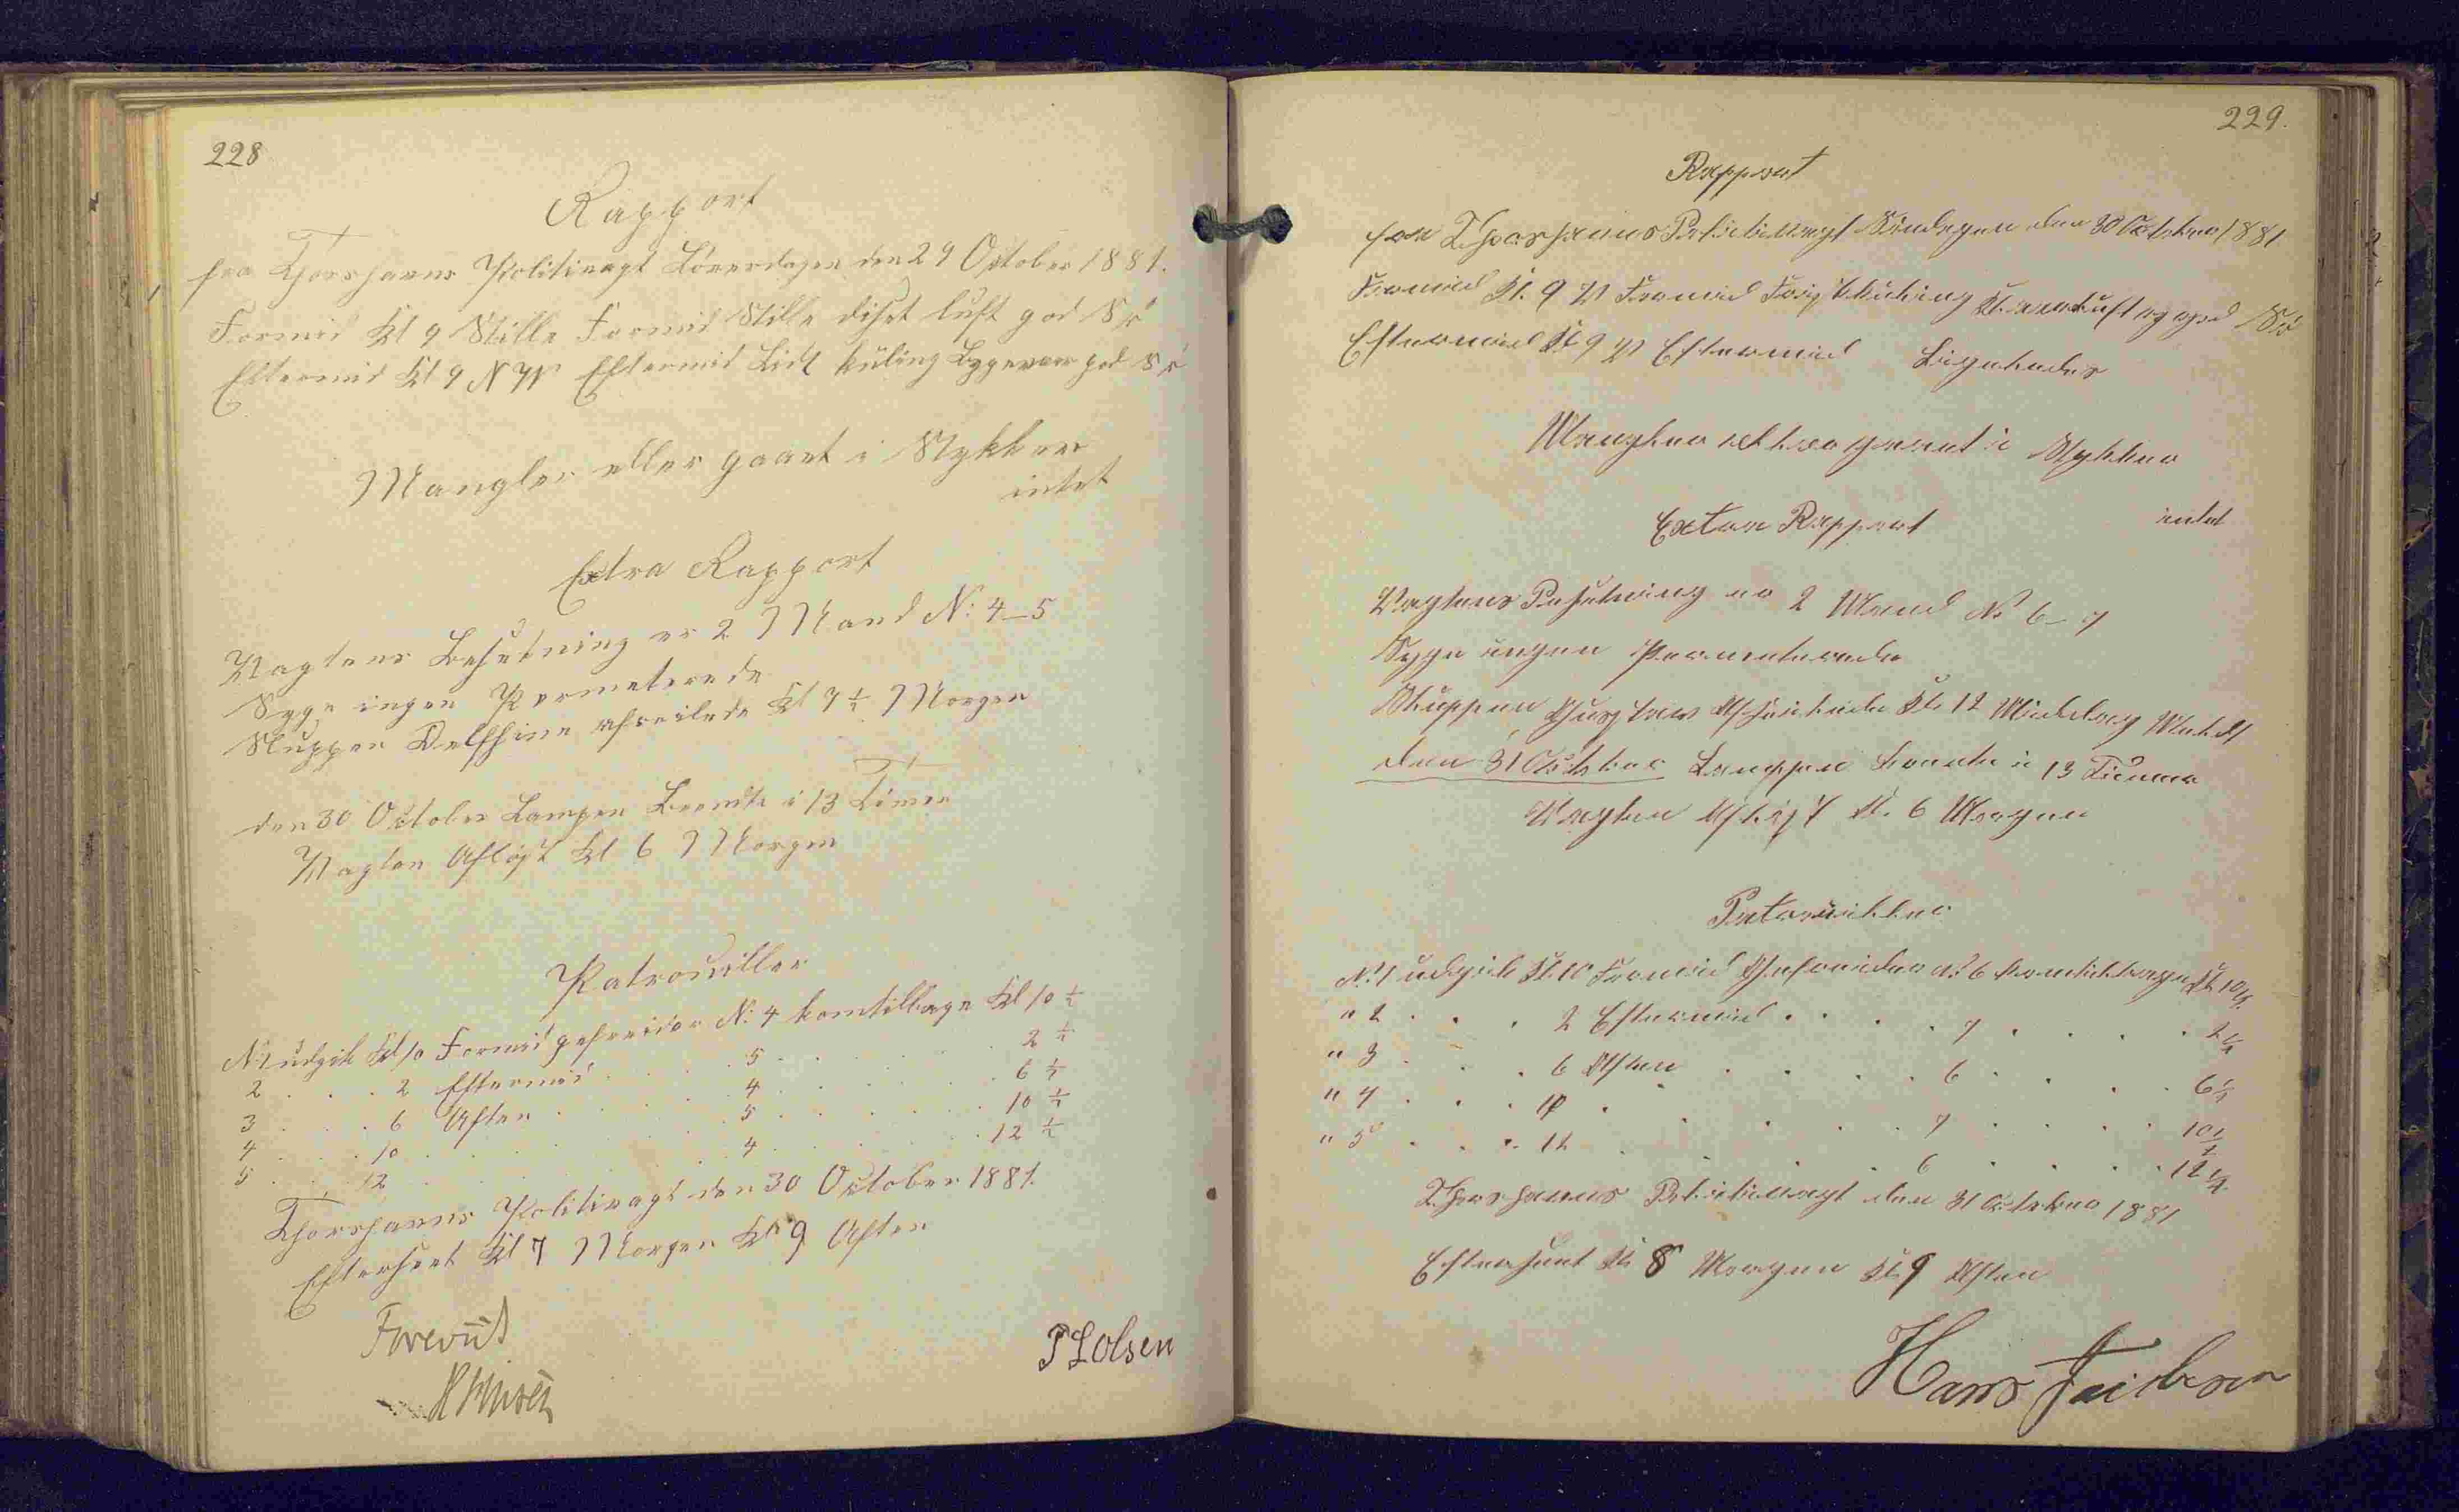 228
Rapport
fra Thorshavns Politivagt Löverdagen den 29 October 1881.
Formid Kl 9 Stille Formid Stille diset luft god Sö
Eftermid Kl 9 N W Eftermid Lidt küling Bygevær god Sö
Mangler eller gaaet i Stykker
intet
Extra Rapport
Vagtens Besetning er 2 Mand N: 4-5
Syge ingen Permeterede
Sluppen Delfhine afseilede Kl 7½ Morgen
den 30 October Lampen Brendte i 13 Timer
Vagten Aflöst Kl 6 Morgen
Patrouiller
N:1 udgik Kl 10 Formid gefreider N: 4 kom tilbage Kl 10 ½
2 . . . 2 Eftermid . . . . 5 . . . . . 2 ½
3 . . . 6 Aften . . . . 4 . . . . . 6 ½
4 . . . 10 . . . . . 5 . . . . . 10 ½
5 . . . 12 . . . . . 4 . . . . . 12 ½
Thorshavns Politivagt den 30 October 1881.
Efterseet Kl 7 Morgen Kl 9 Aften
Foreviist
P L Olsen
229.
Rapport
fra Thorshavns Politivagt Söndagen den 30 October 1881
Formid Kl. 9 V Formid Frisk Kuling Klar Luft og god Sö
Eftermid Kl 9 V Eftermid Ligeledes
Mangler eller gaaet i Stykker
intet
Extra Rapport
Vagtens Besetning er 2 Mand No 6-7
Syge ingen Permeterede
Sluppen Gustav Afseilede Kl. 12 Middag
den 31 October Lampen brente i 13 Timer
Vagten Aflöst Kl. 6 Morgen
Patrouiller
N:1 udgik Kl. 10 Formid Gefreider No 6 kom tilbage Kl. 10½
" 2 . . . 2 Eftermid . . . . 7 . . . . 2½
" 3 . . . 6 Aften . . . . 6 . . . . 6½
" 4 . . . 10 . . . . . 7 . . . . 10½
" 5 . . . 12 . . . . . 6 . . . . 12½
Thorshavns Politivagt den 31 October 1881
Efterseet Kl 8 Morgen Kl. 9 Aften
Hans